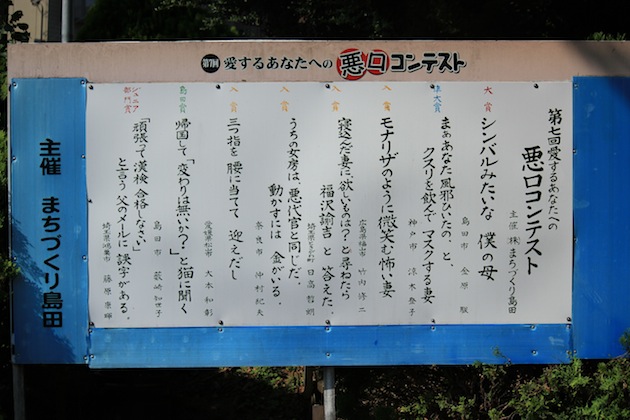 第7回 愛するあなたへの 悪口コンテスト
第七回愛するあなたへの
悪口コンテスト
主催 (株)まちづくり島田
大賞
シンバルみたいな 僕の母
島田市 金原 駿
準大賞
まぁあなた風邪ひいたの、と、
クスリを飲んで マスクする妻
神戸市
入賞
モナリザのように微笑む怖い妻
広島県福山市 竹内
入賞
寝込んだ妻に、欲しいものは?と尋ねたら
福沢諭吉 と 答えた。
埼玉県 日高哲朗
入賞
うちの女房は、悪代官と同じだ、
動かすには 金がいる。
奈良市 仲村紀夫
入賞
三つ指を 腰に当てて 迎えだし
愛媛県松山市 大本和彰
島田賞
帰国して「変わりは無いか?」と猫に聞く
島田市
ジュニア
部門賞
「頑張って漢検合格しなさい」
と言う 父のメールに 誤字がある。
埼玉県鴻巣市 藤原康暉
主催 まちづくり島田